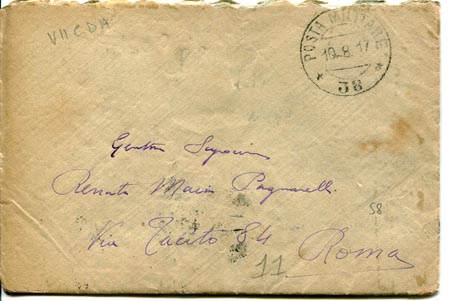 VII C D A
POSTA MILITARE
10.8.17
* 38 *
Gentma Signorina
Renata Maria Pagnarelli
58
Via Tacito 84
Roma
11